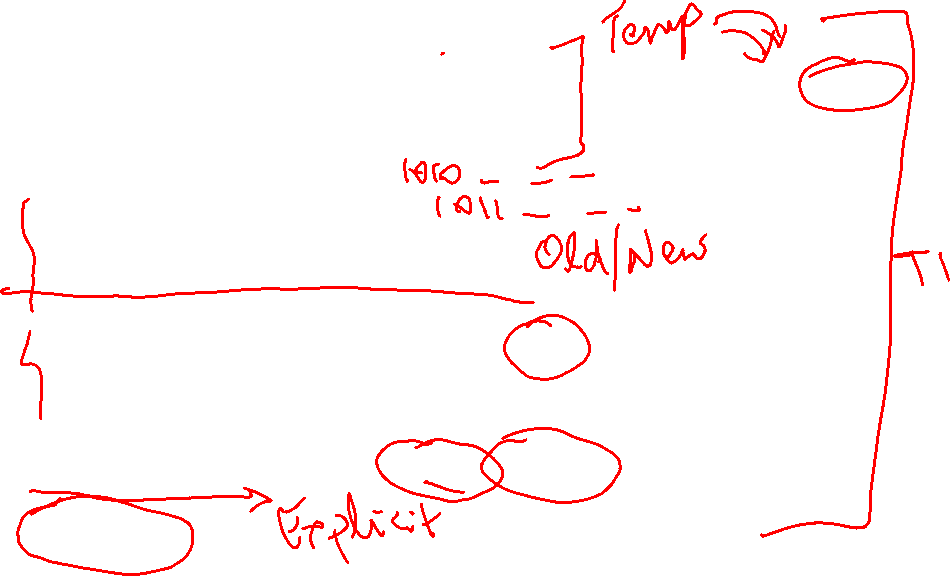 Temp
1010
1011
Old/New
T1
Explicit